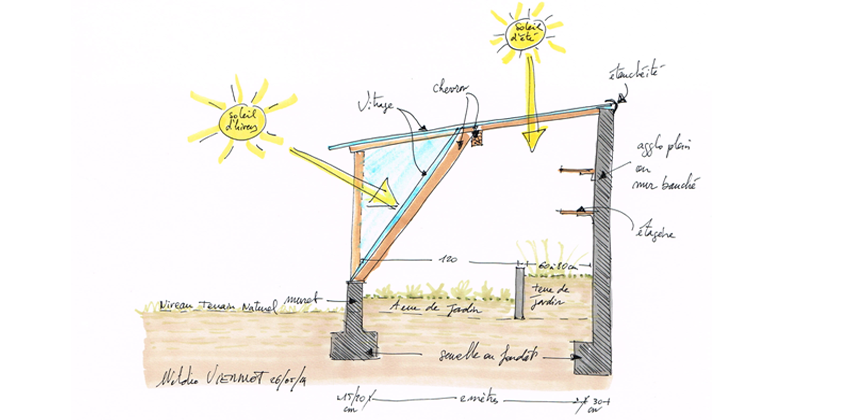 Soleil
d'été
étanchéité
chevron
Vitrage
Soleil
d'hiver
agglo plein
ou
mur banché
étagère
120
60 à 80 cm
terre de
jardin
Niveau Terrain Naturel
muret
Terre de Jardin
semelle ou fondat°
VIENNOT 26/05/
15/20
cm
2 mètres
30
cm